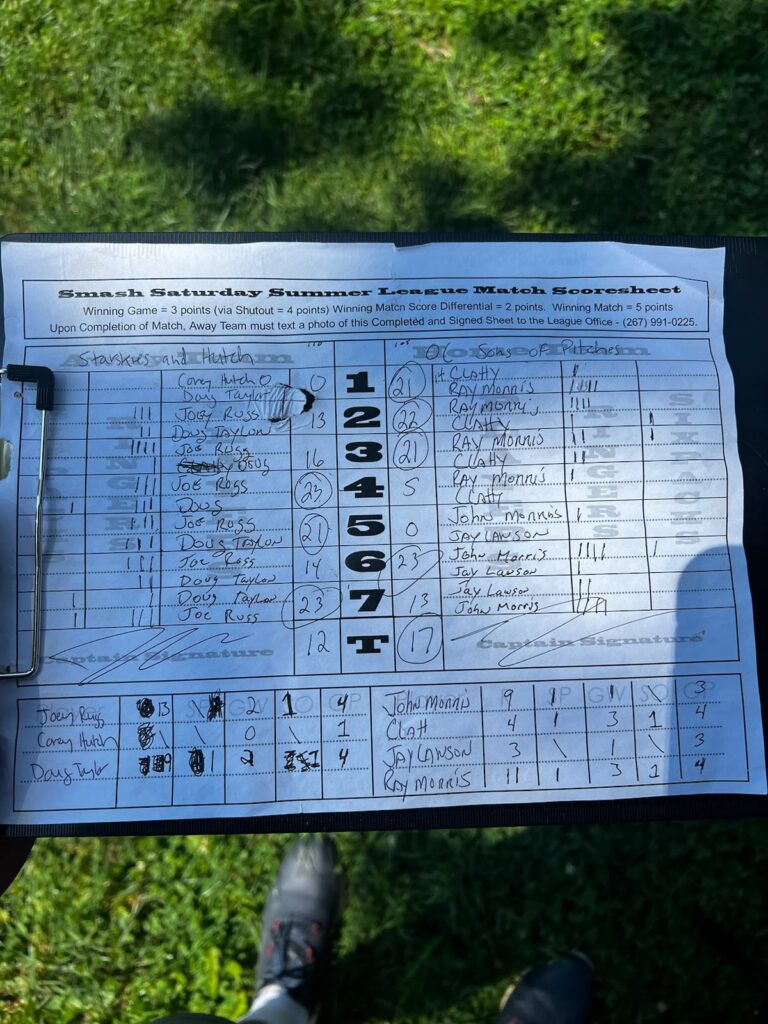 Smash Saturday Summer League Match Scoresheet
Winning Game = 3 points (via Shutout = 4 points) Winning Match Score Differential = 2 points. Winning Match = 5 points
Upon Completion of Match, Away Team must text a photo of this Completed and Signed Sheet to the League Office - (267) 991-0225.
Starskies and Hutch OC Sons of Pitches
Corey Hutch 0 1 21 CLATTY
Doug Taylor RAY MORRIS
Joey Russ 13 2 22 RAY MORRIS
Doug Taylor CLATTY
Joe Russ 16 3 21 RAY MORRIS
Doug CLATTY
Joe Russ 23 4 5 RAY MORRIS
Doug CLATTY
Joe Ross 21 5 0 John Morris
Doug Taylor JAY LAWSON
Joe Ross 14 6 23 John Morris
Doug Taylor Jay Lawson
Doug Taylor 23 7 13 Jay Lawson
Joe Russ John Morris
Captain Signature 12 T 17 Captain Signature
RINGERS SIXPACKS
Joey Russ 13 2 1 4 John Morris 9 1 1 \ 3
Corey Hutch \ \ 0 \ 1 CLATT 4 1 3 1 4
Doug Taylor 9 1 2 4 JAY LAWSON 3 \ 1 \ 3
RAY MORRIS 11 1 3 1 4